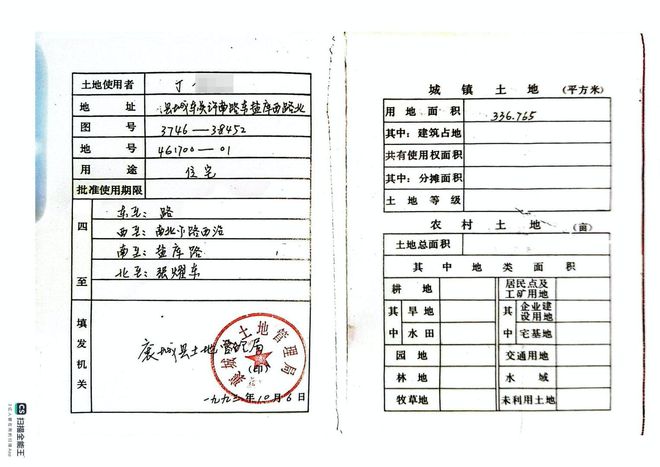 土地使用者 丁
地 址 县城东关许南路东盐库西路北
图 号 3746—38452
地 号 461700—01
用 途 住宅
批准使用期限
四至
东至：路
西至：南北小路西沿
南至：盐库路
北至：张耀东
填发机关
襄城县土地管理局
(印)
襄城县土地管理局
一九九三年10月6日
城镇土地 (平方米)
用地面积 336.765
其中：建筑占地
共有使用权面积
其中：分摊面积
土地等级
农村土地 (亩)
土地总面积
其中地类面积
耕 地 居民点及工矿用地
其中 旱地 其中 企业建设用地
水田 宅基地
园 地 交通用地
林 地 水 域
牧草地 未利用土地
CS 扫描全能王
3亿人都在用的扫描App